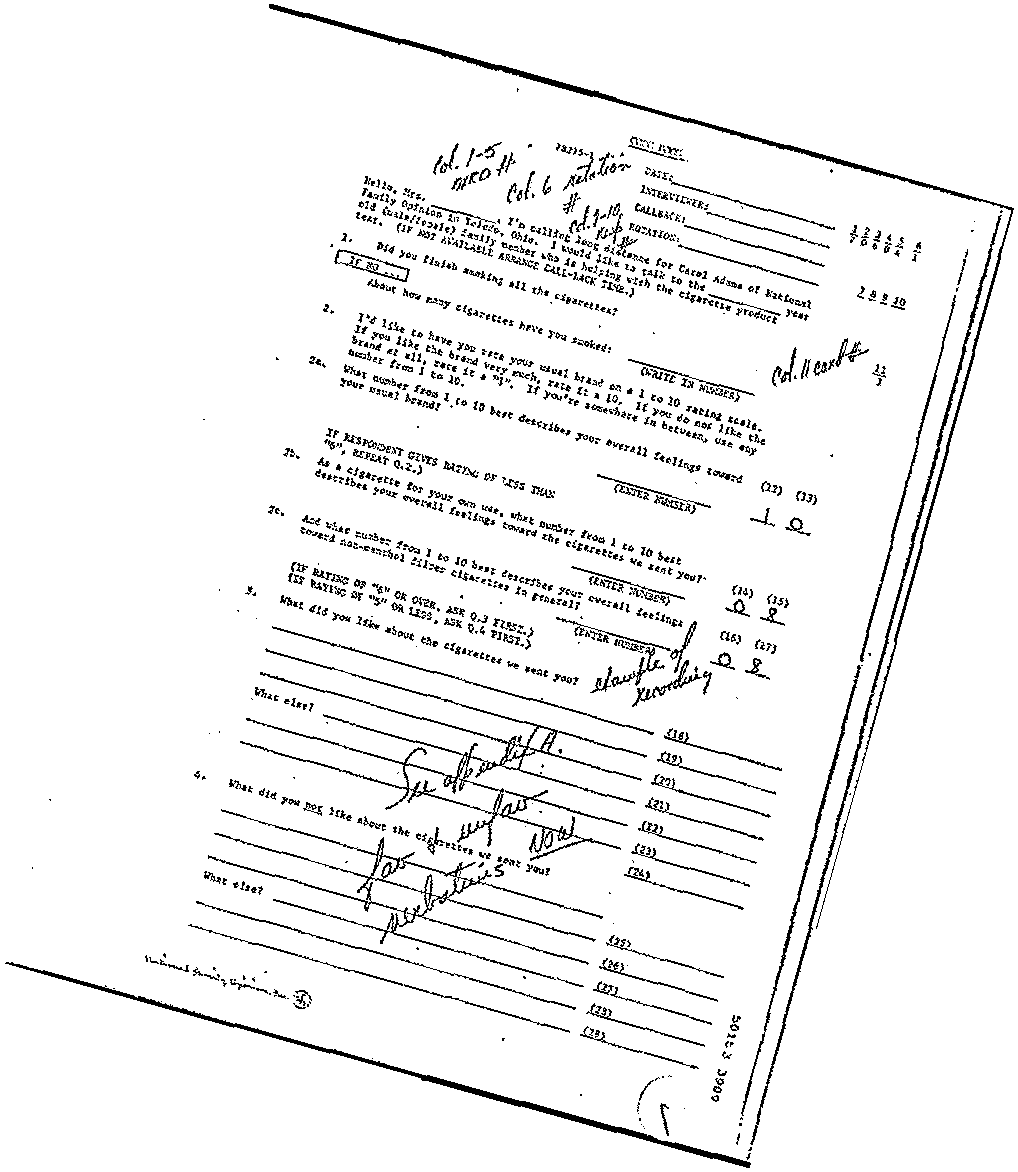 Col. 1-5
Col. 6 rotation
#
DATE:
INTERVIEWER:
CALLBACK:
ROTATION:
1 2 3 4 5 6
7 8 9 10
Hello, Mrs. , I'm calling long distance for Carol Adams of National
Family Opinion in Toledo, Ohio. I would like to talk to the year
old (male/female) family member who is helping with the cigarette product
test. (IF NOT AVAILABLE ARRANGE CALL-BACK TIME.)
1. Did you finish smoking all the cigarettes?
IF NO ...
About how many cigarettes have you smoked:
(WRITE IN NUMBER)
Col. 11 card #
11
1
2. I'd like to have you rate your usual brand on a 1 to 10 rating scale.
If you like the brand very much, rate it a 10. If you do not like the
brand at all, rate it a "1". If you're somewhere in between, use any
number from 1 to 10.
2a. What number from 1 to 10 best describes your overall feelings toward
your usual brand?
(12) (13)
(ENTER NUMBER)
1 0
IF RESPONDENT GIVES RATING OF LESS THAN
"5", REPEAT Q.2.)
2b. As a cigarette for your own use, what number from 1 to 10 best
describes your overall feelings toward the cigarettes we sent you?
(14) (15)
(ENTER NUMBER)
0 8
2c. And what number from 1 to 10 best describes your overall feelings
toward non-menthol filter cigarettes in general?
(16) (17)
(ENTER NUMBER)
0 8
(IF RATING OF "6" OR OVER, ASK Q.3 FIRST.)
(IF RATING OF "5" OR LESS, ASK Q.4 FIRST.)
3. What did you like about the cigarettes we sent you?
example of
recording
(18)
What else?
(19)
(20)
(21)
(22)
(23)
(24)
See appendix A.
fav & unfav NOW
verbatims
4. What did you not like about the cigarettes we sent you?
(25)
What else?
(26)
(27)
(28)
National Family Opinion, Inc.